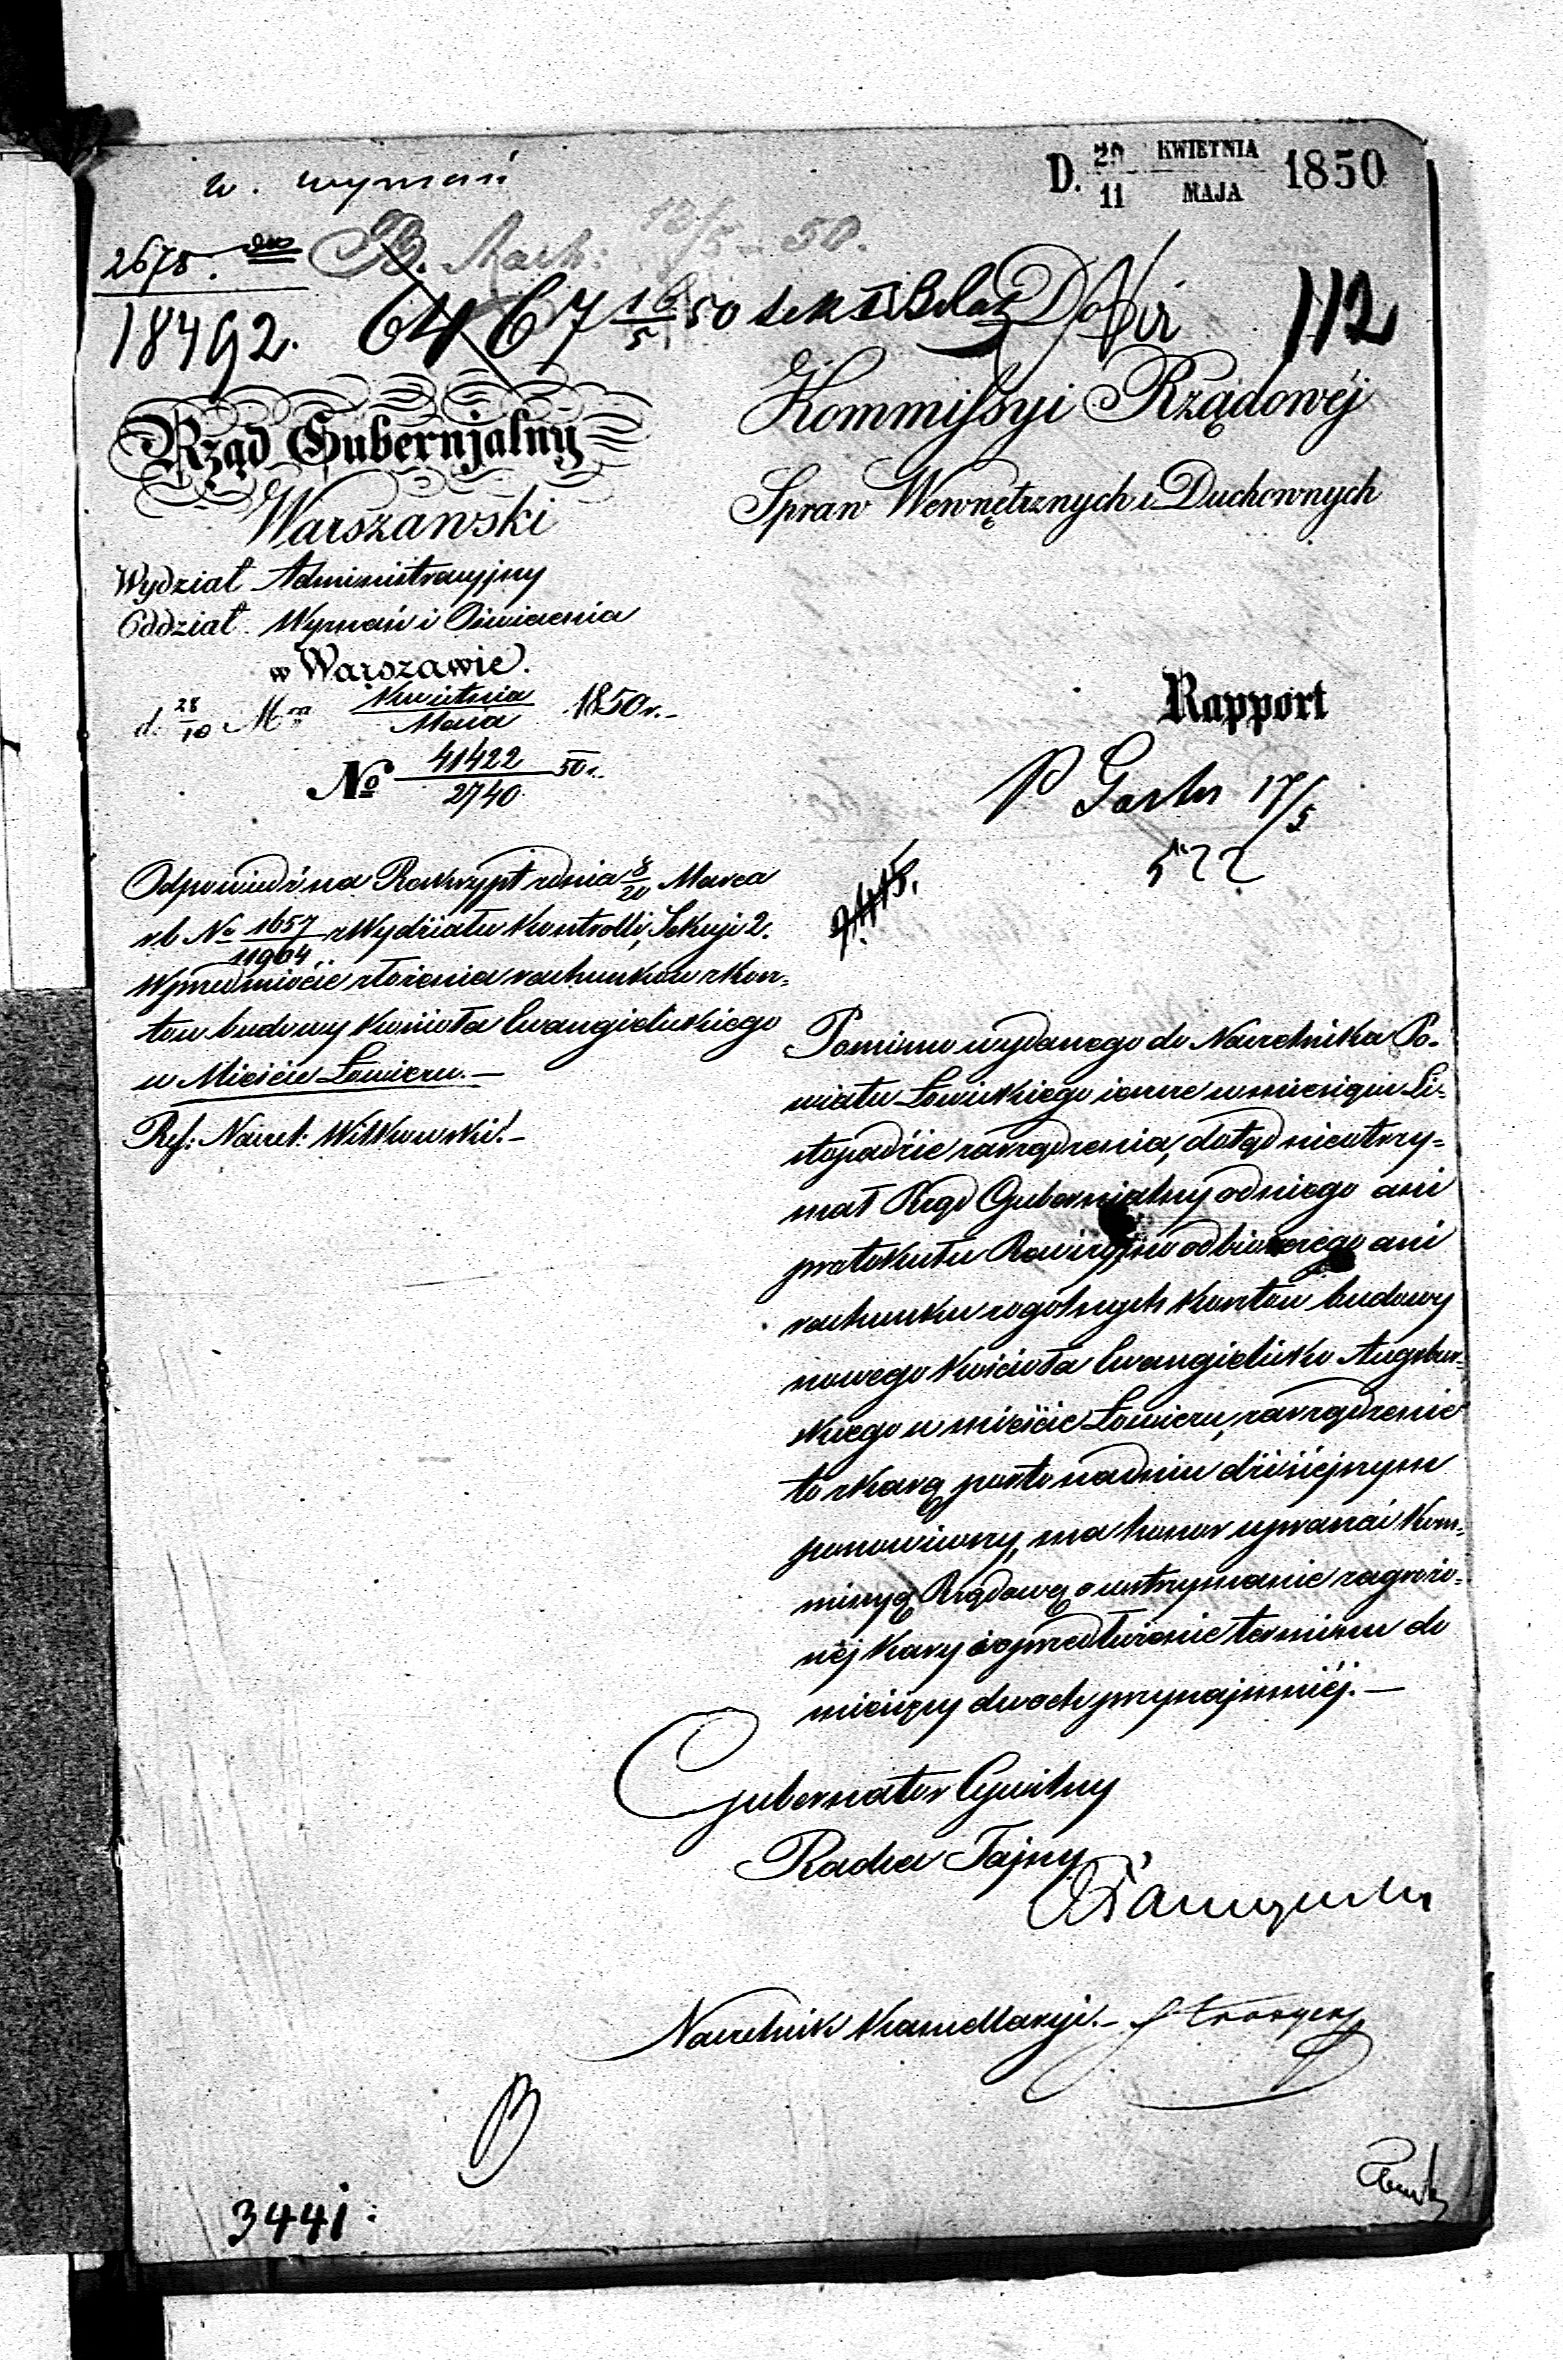 w. wyznań
D. 29/11 KWIETNIA/MAJA 1850
2675.
18492.
12/5 - 50.
6467 16/5 50
112
Rząd Gubernjalny
Warszawski
Wydział Administracyjny
Oddział Wyznań i Oświecenia
w Warszawie.
d. 28/10 Mca Kwietnia/Maia 1850 r.
No 41422/2740 50 r.
Kommissyi Rządowéj
Spraw Wewnętrznych i Duchownych
Rapport
17/5
522
Odpowiedź na Reskrypt z dnia 8/20 Marca
r b No 1657/11964 z Wydziału Kontrolli, Sekcyi 2.
W przedmiocie złożenia rachunków z kosz=
tow budowy kościoła Ewangielickiego
w Mieście Łowiczu. —
Ref: Naczel: Witkowski. —
2445.
Pomimo wydanego do Naczelnika Po-
wiatu Łowickiego ieszcze w miesiącu Li=
stopadzie zarządzenia, dotąd nie otrzy=
mał Rząd Gubernialny od niego ani
protokułu Rewizyjno odbiorczego ani
rachunku z ogólnych kosztów budowy
nowego kościoła Ewangielicko Augsbur=
skiego w mieście Łowiczu, zarządzenie
to z karą posłó na dniu dzisiejszym
ponowiwszy, ma honor upraszać Kom=
missyą Rządową o wstrzymanie zagrożo=
néj kary i o przedłużenie terminu do
miesięcy dwóch przynajmniéj. —
Gubernator Cywilny
Radca Tajny
Naczelnik Kancellaryi. —
3441.